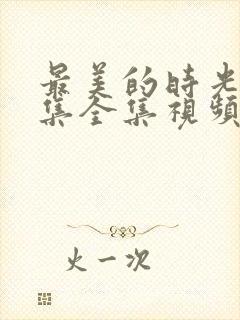 最美的時光
集全集視頻
火一次